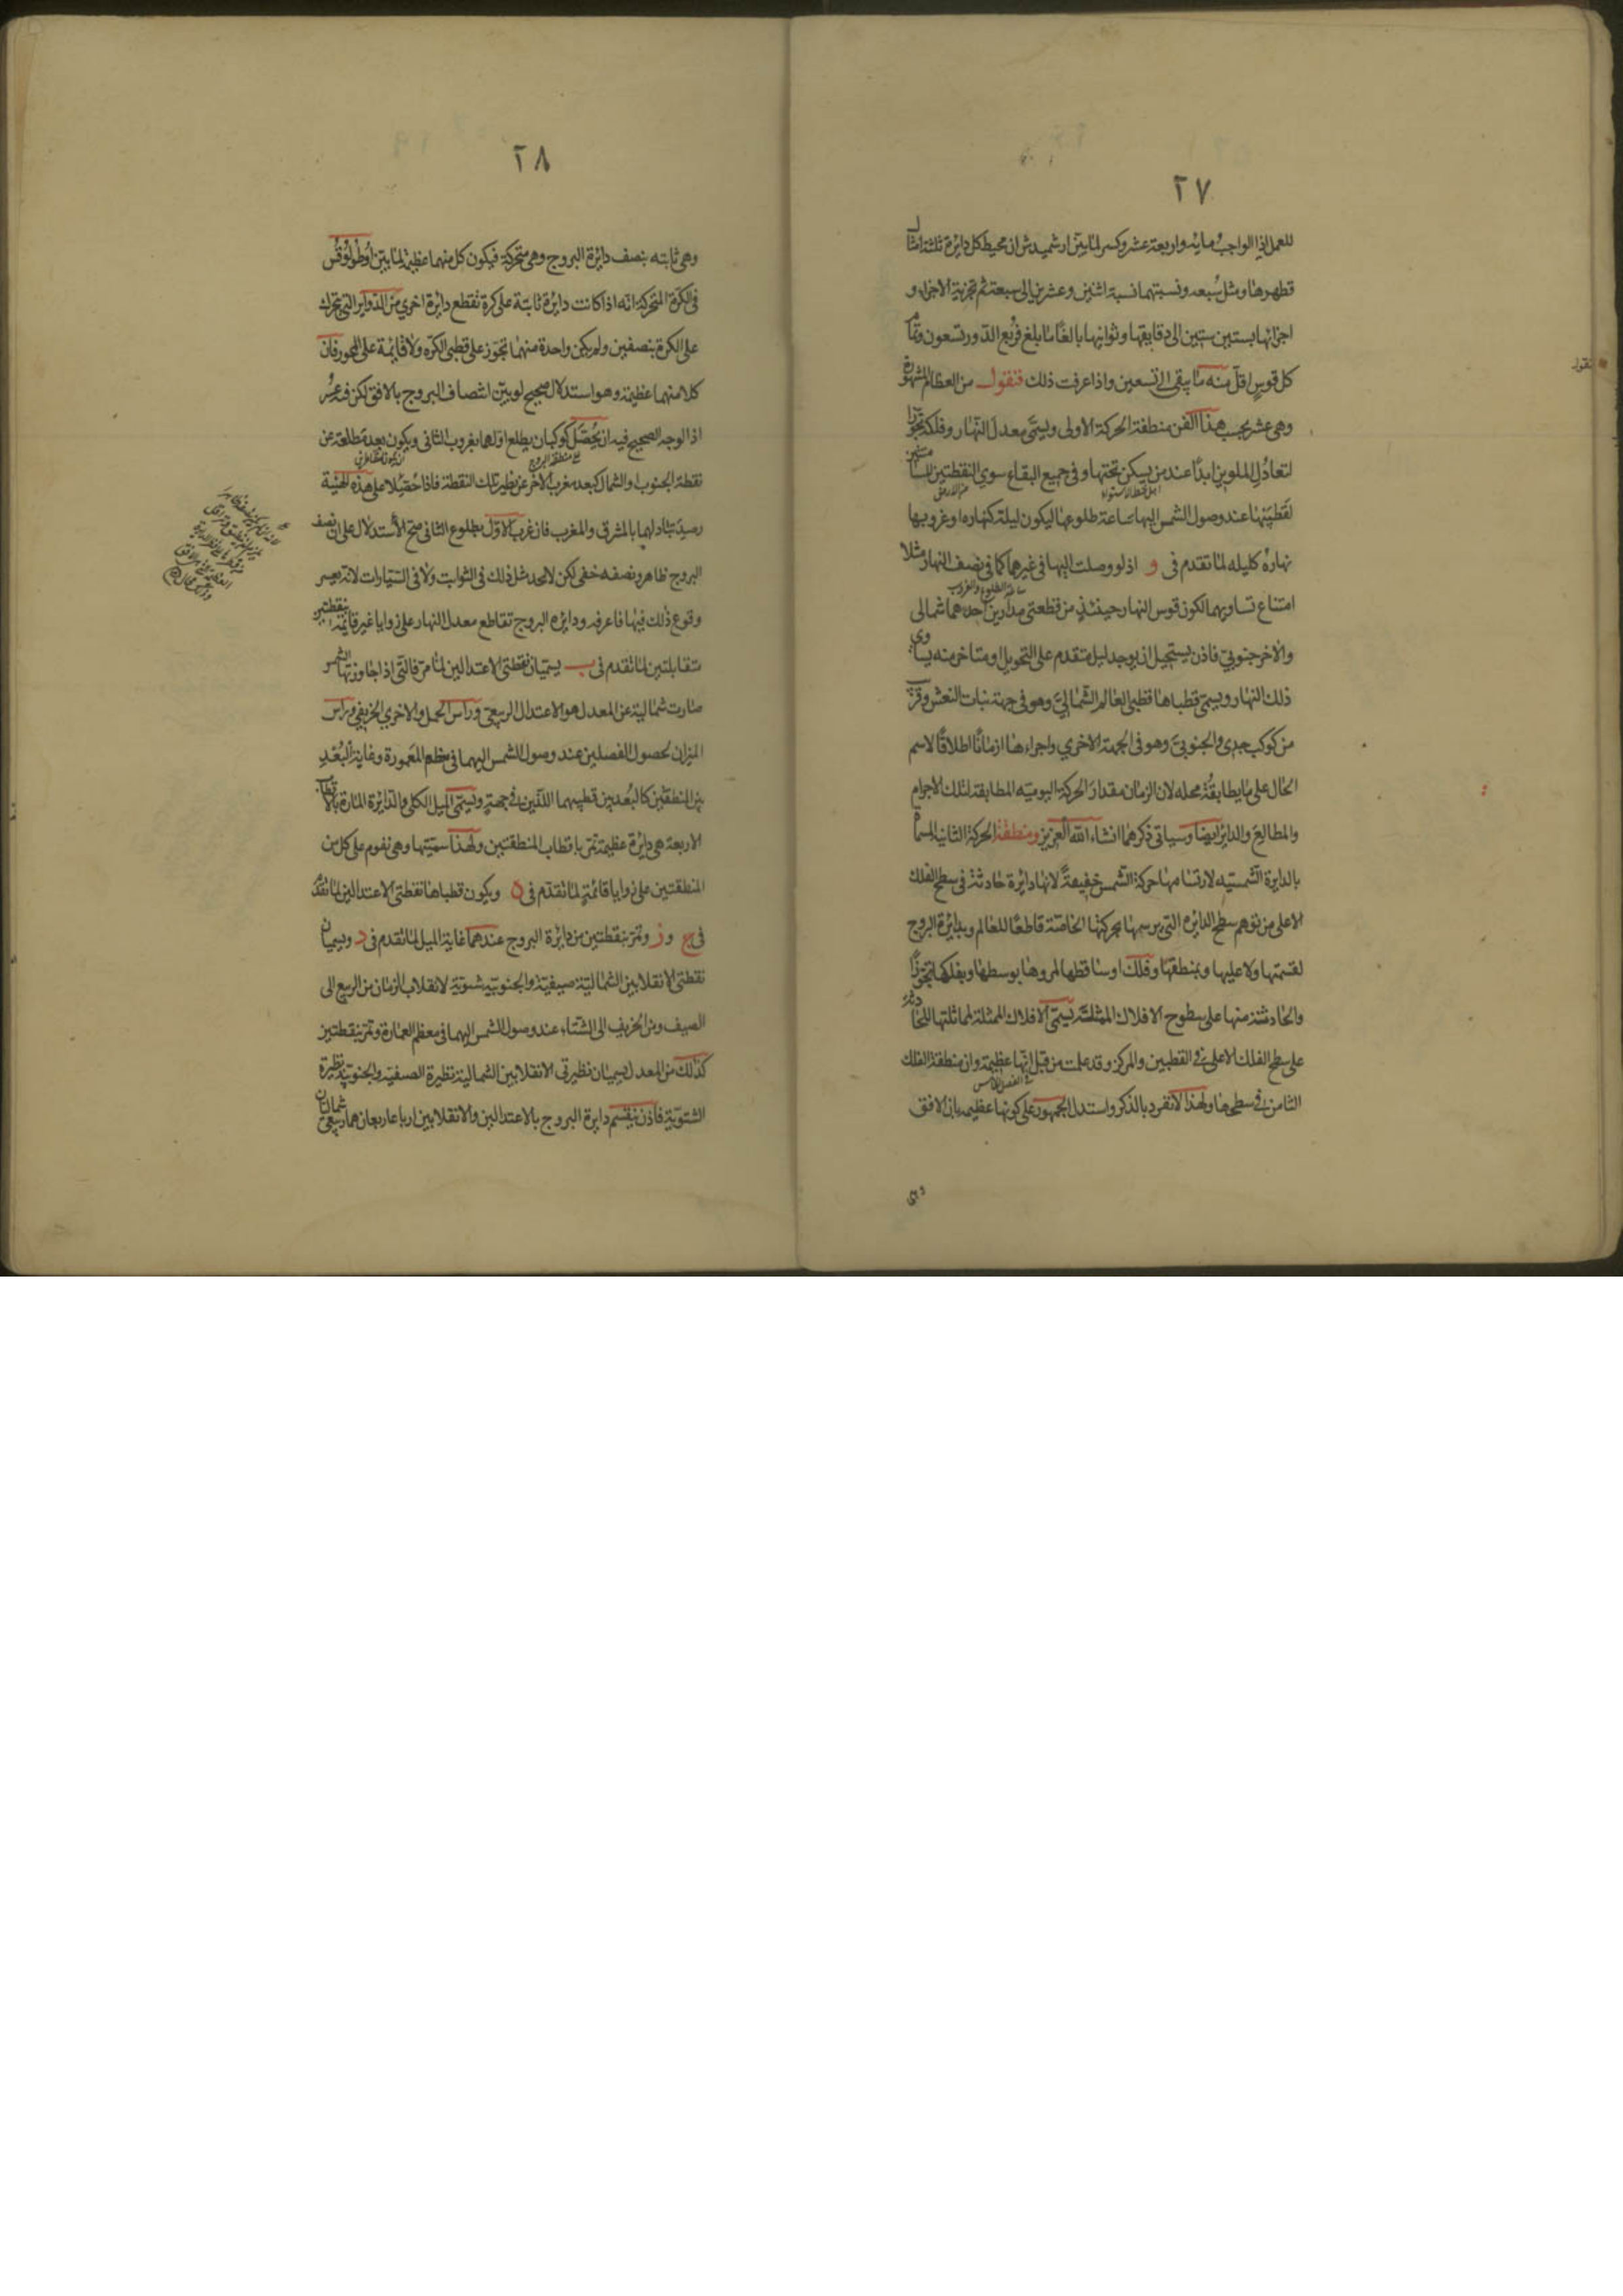 ٢٧
للعمل اذا الواجب مايه واربعة عشر وكسر لما بين ارشميدش ان محيط كل دايرة ثلثة امثال
قطرها ومثل سبعه ونسبتهما نسبة اثنين وعشرين الى سبعة ثم تجزية الاجزاء و
اجزائها بستين ستين الى دقايقها وثوانيها بالغا ما بلغ فربع الدور تسعون وتمام
كل قوس اقل منه ما يبقى الى تسعين واذا عرفت ذلك فنقول من العظام المشهورة
وهى عشر بحسب هذا الفن منطقة الحركة الاولى ويسمى معدل النهار وفلكه تجوزا
لتعادل الملوين ابدا عند من يسكن تحتها وفى جميع البقاع سوي النقطتين المسامتتين
اهل خط الاستواء
لقطبيها عند وصول الشمس اليها ساعة طلوعها ليكون ليلة كنهاره او غروبها
نهاره كليله لما تقدم فى و اذ لو وصلت اليها فى غيرهما كما فى نصف النهار مثلا
ساعة الطلوع والغروب
امتناع تساويهما لكون قوس النهار حينئذ من قطعتى مدارين احدهما شمالى
والاخر جنوبي فاذن يستحيل ان يوجد ليل متقدم على التحويل او متاخر منه يساوى
ذلك النهار ويسمى قطباها قطبي العالم الشمالي وهو فى جهة بنات النعش وقرب
من كوكب جدى والجنوبي وهو فى الجهة الاخري واجزاءها ازمانا اطلاقا لاسم
الحال على ما يطابقه محله لان الزمان مقدار الحركة اليومية المطابقة لتلك الاجزاء
والمطالع والداير ايضا وسياتى ذكرهما انشاء الله العزيز ومنطقة الحركة الثانية المسماة
بالدايرة الشمسيه لارتسامها من حركة الشمس حقيقة لانها دايرة حادثة فى سطح الفلك
الاعلى من توهم سطح الدايرة التى يرسمها بحركتها الخاصة قاطعا للعالم وبدايرة البروج
لقسمتها ولا عليها وبمنطقها وفلك اوساطها لمروها بوسطها وبفلكها تجوزا
والحادثة منها على سطوح الافلاك الممثلة يسمى الافلاك الممثلة لمماثلتها للحادثة
على سطح الفلك الاعلى فى القطبين والمركز وقد علمت من قبل انها عظيمة وان منطقة الفلك
فى الفصل الخامس
الثامن فى سطحها ولهذا لا تفرد بالذكر واستدل الجمهور على كونها عظيمه بان الافق
وهى
نقول
٢٨
وهى ثابته بنصف دايرة البروج وهى متحركة فيكون كل منهما عظيمة لما بين اوطولوقس
فى الكرة المتحركة انه اذا كانت دايرة ثابتة على كرة تقطع دايرة اخري من الدواير التى تتحرك
على الكرة بنصفين ولم يكن واحدة منهما تجوز على قطبى الكره ولا قايمة على المحور فان
كلا منهما عظيمة وهو استدلال صحيح لو بين انتصاف البروج بالافق لكن فيه عسر
اذ الوجه الصحيح فيه ان يحصل كوكبان يطلع اولهما بغروب الثانى ويكون بعد مطلعه عن
على منطقة البروج
نقطة الجنوب او الشمال كبعد مغرب الاخر عن نظير تلك النقطة فاذا حصلا على هذه الهيئة
رصد تبادلهما بالمشرق والمغرب فان غرب الاول بطلوع الثانى صح الاستدلال على ان نصف
البروج ظاهر ونصفه خفى لكن لا يحد مثل ذلك فى الثوابت ولا فى السيارات لانه يعسر
وقوع ذلك فيها فاعرفه ودايره البروج تقاطع معدل النهار على زوايا غير قايمة بنقطتين
متقابلتين لما تقدم فى ب يسميان نقطتى الاعتدالين لما مر فالتى اذا جاوزتها الشمس
صارت شمالية عن المعدل هو الاعتدال الربيعى وراس الحمل والاخري الخريفى وراس
الميزان لحصول الفصلين عند وصول الشمس اليهما فى معظم المعمورة وغاية البعد
بين المنطقتين كالبعد بين قطبيهما اللذين فى جهة ويسمى الميل الكلى والدايرة المارة بالاقطاب
الاربعة هى دايرة عظيمة تمر باقطاب المنطقتين ولهذا سميتها وهى تقوم على كل من
المنطقتين على زوايا قائمة لما تقدم فى ه ويكون قطباها نقطتى الاعتدالين لما تقدم
فى ج و ز وتمر بنقطتين من دايرة البروج عندهما غاية الميل لما تقدم فى د ويسميان
نقطتى الانقلابين الشمالية صيفية والجنوبية شتوية لانقلاب الزمان من الربيع الى
الصيف ومن الخريف الى الشتاء عند وصول الشمس اليهما فى معظم العمارة وتمر بنقطتين
كذلك من المعدل يسميان نظيرتى الانقلابين الشمالية نظيرة الصيفية والجنوبية نظيرة
الشتوية فاذن ينقسم دايرة البروج بالاعتدالين والانقلابين ارباعا ربعان شماليان هما ربيعى